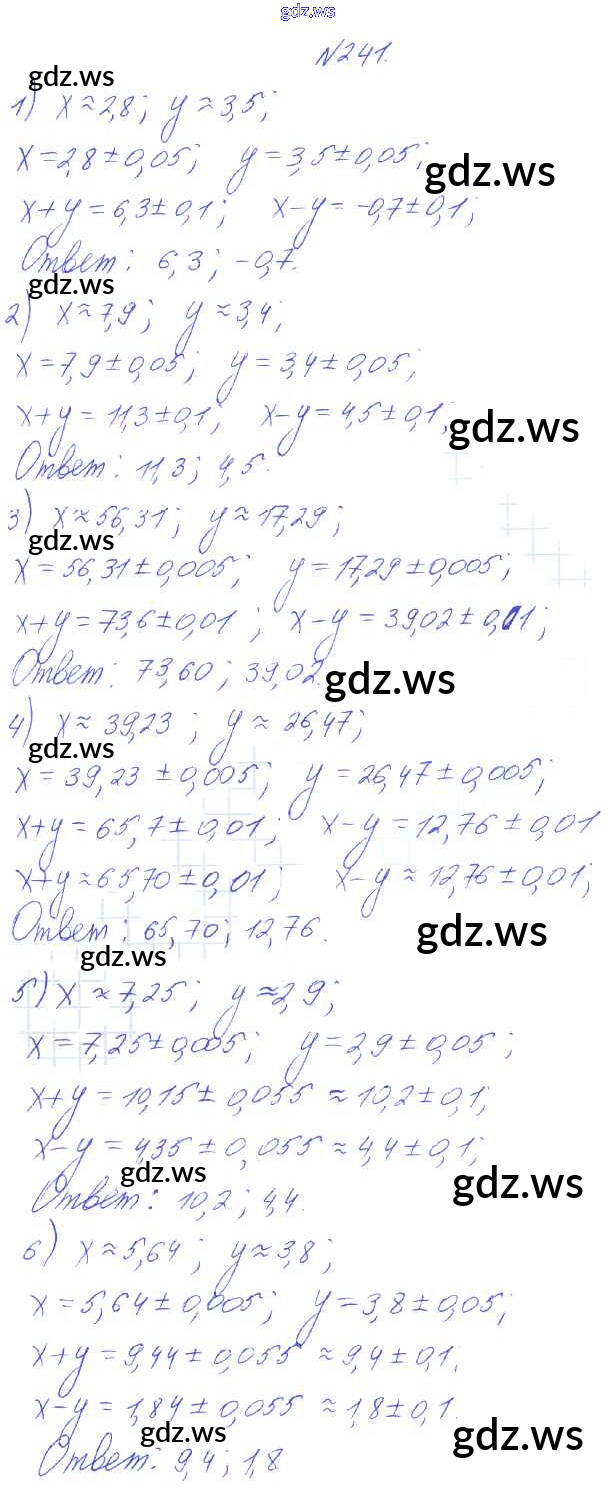 gdz.ws
N241.
gdz.ws
1) x≈2,8; y≈3,5;
x=2,8±0,05; y=3,5±0,05;
gdz.ws
x+y=6,3±0,1; x-y=-0,7±0,1;
Ответ: 6,3; -0,7.
gdz.ws
2) x≈7,9; y≈3,4;
x=7,9±0,05; y=3,4±0,05;
x+y=11,3±0,1; x-y=4,5±0,1;
gdz.ws
Ответ: 11,3; 4,5.
3) x≈56,31; y≈17,29;
gdz.ws
x=56,31±0,005; y=17,29±0,005;
x+y=73,6±0,01; x-y=39,02±0,01;
Ответ: 73,60; 39,02.
gdz.ws
4) x≈39,23; y≈26,47;
gdz.ws
x=39,23±0,005; y=26,47±0,005;
x+y=65,7±0,01; x-y=12,76±0,01
x+y≈65,70±0,01; x-y≈12,76±0,01;
Ответ: 65,70; 12,76.
gdz.ws
gdz.ws
5) x≈7,25; y≈2,9;
x=7,25±0,005; y=2,9±0,05;
x+y=10,15±0,055≈10,2±0,1;
x-y=4,35±0,055≈4,4±0,1;
gdz.ws
gdz.ws
Ответ: 10,2; 4,4.
6) x≈5,64; y≈3,8;
x=5,64±0,005; y=3,8±0,05;
x+y=9,44±0,055≈9,4±0,1.
x-y=1,84±0,055≈1,8±0,1.
gdz.ws
gdz.ws
Ответ: 9,4; 1,8